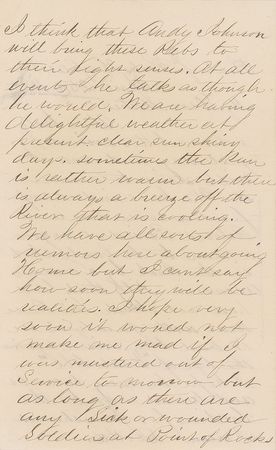 I think that Andy Johnson
will bring these Rebs to
their right senses. At all
events he talks as though
he would. We are having
delightful weather at
present clear sun shiny
days. sometimes the Sun
is rather warm but there
is always a breeze off the
River that is cooling.
We have all sorts of
rumors here about going
Home but I cant say
how soon they will be
realities. I hope very
soon it would not
make me mad if I
was mustered out of
Service to morrow but
as long as there are
any Sick or wounded
Soldiers at Point of Rocks